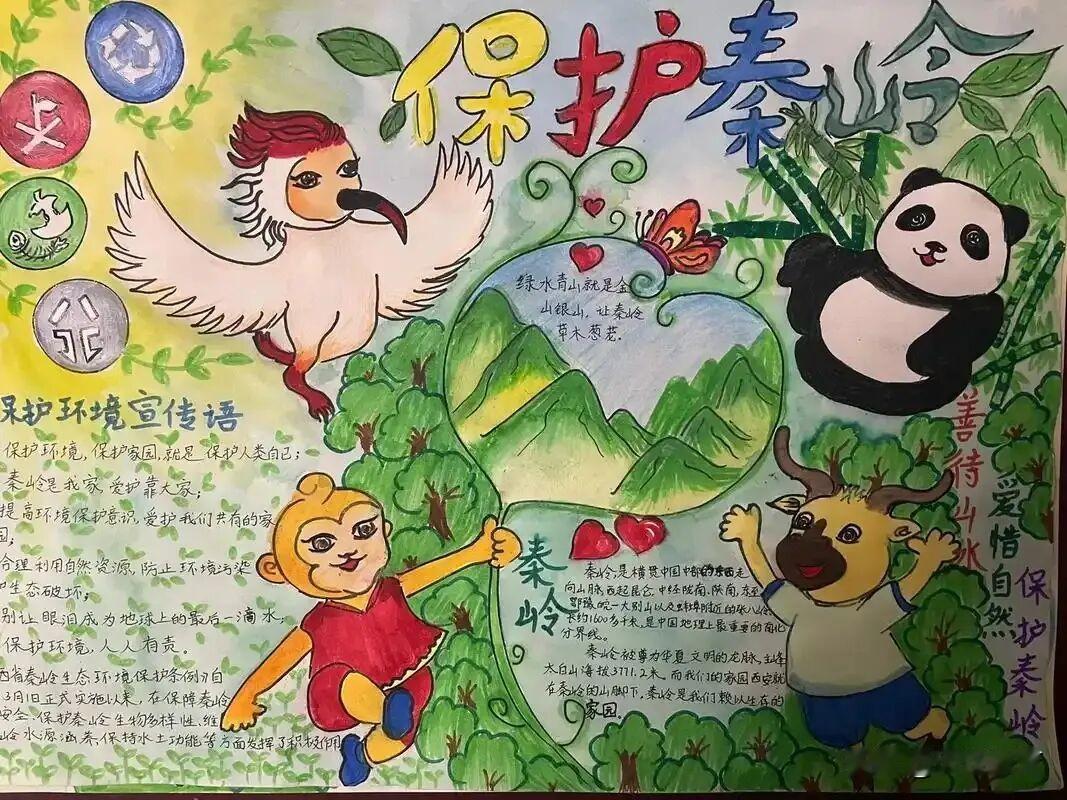 保护秦岭
绿水青山就是金
山银山，让秦岭
草木葱茏。
保护环境宣传语
保护环境，保护家园，就是保护人类自己；
秦岭是我家，爱护靠大家；
提高环境保护意识，爱护我们共有的家
园；
合理利用自然资源，防止环境污染
生态破坏；
别让眼泪成为地球上的最后一滴水；
保护环境，人人有责。
西省秦岭生态环境保护条例》自
3月1日正式实施以来，在保障秦岭
安全、保护秦岭生物多样性、维
岭水源涵养、保持水土功能等方面发挥了积极作用
秦岭
秦岭，是横贯中国中部的东西走
向山脉，西起昆仑，中经陇南、陕南，东至
鄂豫皖—大别山以及蚌埠附近的张八岭
长约1600多千米，是中国地理上最重要的南北
分界线。
秦岭被尊为华夏文明的龙脉，主峰
太白山海拔3771.2米，而我们的家园西安就
在秦岭的山脚下，秦岭是我们赖以生存的
家园。
善待山水
爱惜自然
保护秦岭